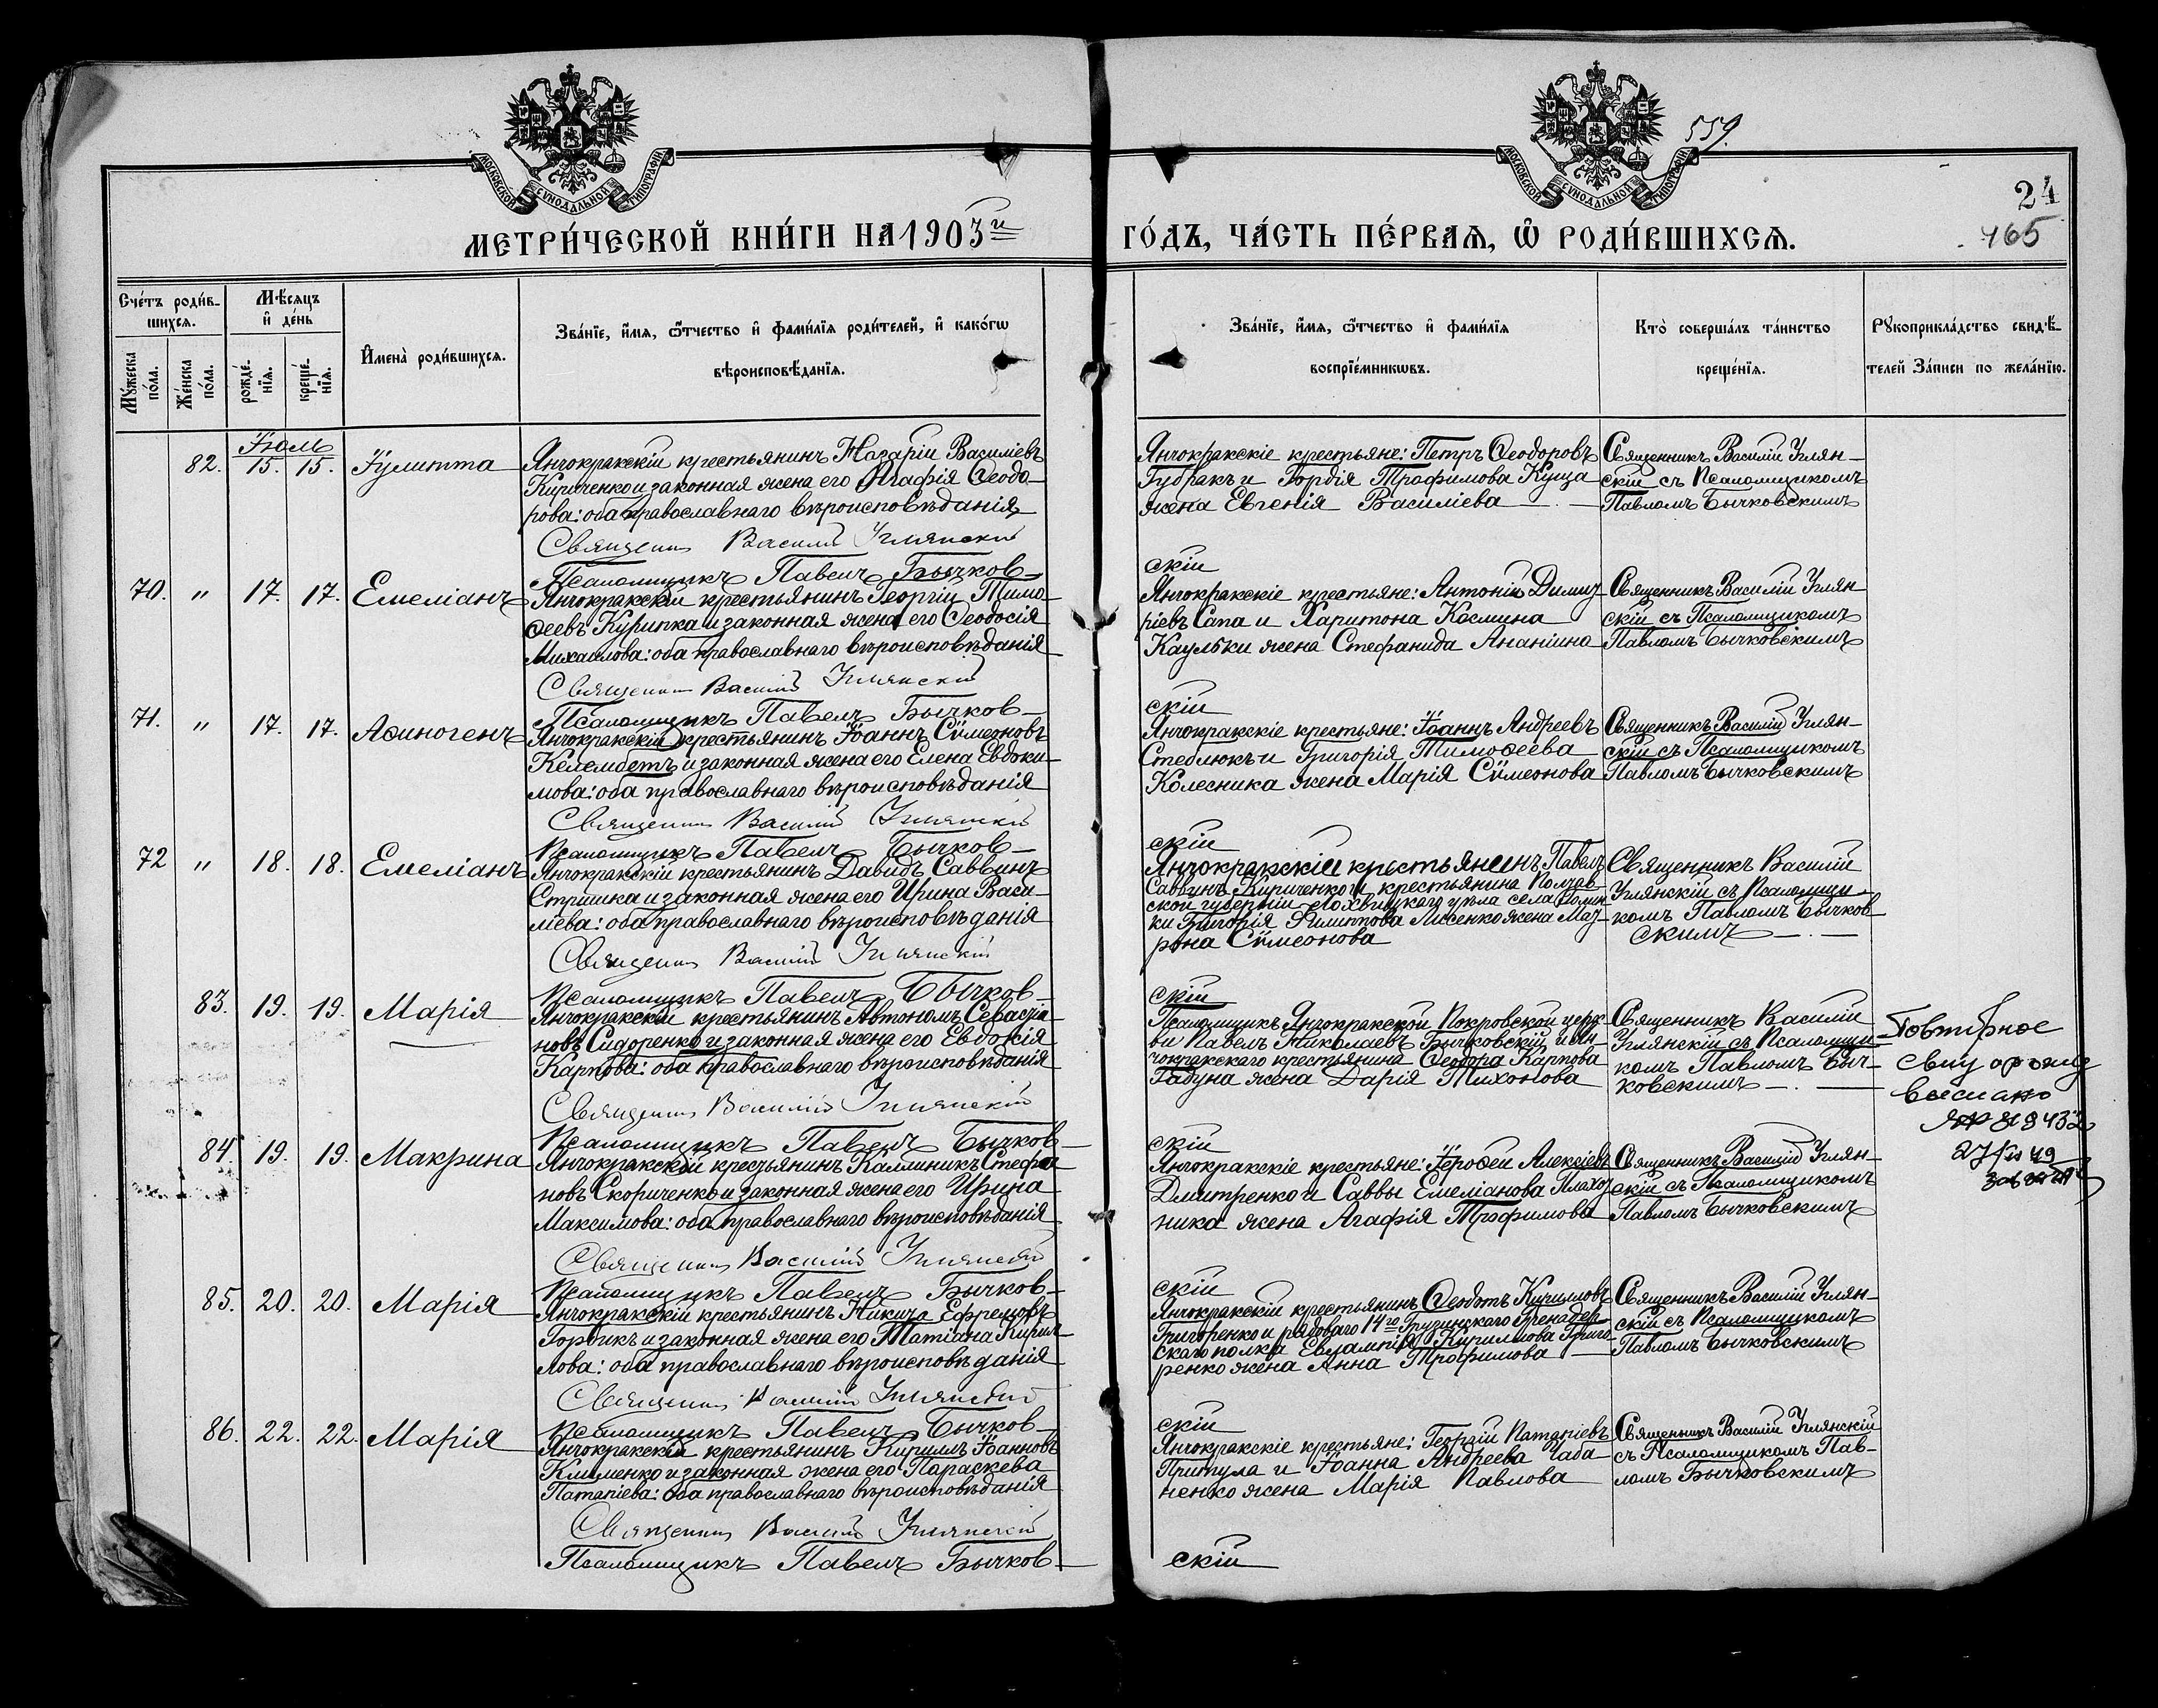 МОСКОВСКОЙ СУНОДАЛЬНОЙ ТИПОГРАФІИ
МОСКОВСКОЙ СУНОДАЛЬНОЙ ТИПОГРАФІИ
559.
24
465
МЕТРИ́ЧЕСКОЙ КНИ́ГИ НА 1903й
ГО́ДЪ, ЧА́СТЬ ПЕ́РВАѦ, Ѡ РОДИ́ВШИХСѦ.
Сче́тъ роди́в-
шихсѧ.
Мѣ́сяцъ
и де́нь
Мꙋ́жеска
по́ла.
Же́нска
по́ла.
рожде́-
нїѧ.
креще́-
нїѧ.
И҆мена̀ роди́вшихсѧ.
Зва́нїе, и҆́мѧ, ѻ҆́тчество и҆ фами́лїѧ роди́телей, и҆ како́гѡ
вѣроисповѣ́данїѧ.
Зва́нїе, и҆́мѧ, ѻ҆́тчество и҆ фами́лїѧ
воспрїе́мникѡвъ.
Кто̀ соверша́лъ та́инство
креще́нїѧ.
Рꙋкоприкла́дство свидѣ́-
телей За́писи по жела́нїю.
Іюль
82. 15. 15. Іулитта
Янчокракскій крестьянинъ Назарій Василіевъ
Кириченко и законная жена его Агафія Ѳеодо-
рова: оба православнаго вѣроисповѣданія
Священникъ Василій Углянскій
Псаломщикъ Павелъ Бычков-
Янчокракскіе крестьяне: Петръ Ѳеодоровъ
Губракъ и Гордія Трофимова Куща
жена Евгенія Василіева
скій
Священникъ Василій Углян-
скій съ Псаломщикомъ
Павломъ Бычковскимъ
70. " 17. 17. Емеліанъ
Янчокракскій крестьянинъ Георгій Тимо-
ѳеевъ Курипка и законная жена его Ѳеодосія
Михаилова: оба православнаго вѣроисповѣданія
Священникъ Василій Углянскій
Псаломщикъ Павелъ Бычков-
Янчокракскіе крестьяне: Антоній Димит-
ріевъ Сапа и Харитона Космина
Каульки жена Стефанида Ананіина
скій
Священникъ Василій Углян
скій съ Псаломщикомъ
Павломъ Бычковскимъ
71. " 17. 17. Аѳиногенъ
Янчокракскій крестьянинъ Іоаннъ Сѵмеоновъ
Келембетъ и законная жена его Елена Евдоки-
мова: оба православнаго вѣроисповѣданія
Священникъ Василій Углянскій
Псаломщикъ Павелъ Бычков-
Янчокракскіе крестьяне: Іоаннъ Андреевъ
Стеблюкъ и Григорія Тимоѳеева
Колесника жена Марія Сѵмеонова
скій
Священникъ Василій Углян-
скій съ Псаломщикомъ
Павломъ Бычковскимъ
72 " 18. 18. Емеліанъ
Янчокракскій крестьянинъ Давидъ Саввинъ
Стришка и законная жена его Ирина Васи-
ліева: оба православнаго вѣроисповѣданія
Священникъ Василій Углянскій
Псаломщикъ Павелъ Бычков-
Янчокракскій крестьянинъ Павелъ
Саввинъ Кириченко и крестьянина Полтав-
ской губерніи Лохвицкаго уѣзда села
ки Григорія Филиппова Лисенко жена Мат-
рона Сѵмеонова
скій
Священникъ Василій
Углянскій съ Псаломщи-
комъ Павломъ Бычков-
скимъ
83. 19. 19. Марія
Янчокракскій крестьянинъ Автономъ Севастіа-
новъ Сидоренко и законная жена его Евдокія
Карпова: оба православнаго вѣроисповѣданія
Священникъ Василій Углянскій
Псаломщикъ Павелъ Бычков-
Псаломщикъ Янчокракской Покровской церк-
ви Павелъ Николаевъ Бычковскій и Ян-
чокракскаго крестьянина Ѳеодора Карпова
Габуна жена Дарія Тихонова
скій
Священникъ Василій
Углянскій съ Псаломщи-
комъ Павломъ Быч-
ковскимъ
Повторное
выслано
84. 19. 19. Макрина
Янчокракскій крестьянинъ Каллиникъ Стефа-
новъ Скориченко и законная жена его Ирина
Максимова: оба православнаго вѣроисповѣданія
Священникъ Василій Углянскій
Псаломщикъ Павелъ Бычков-
Янчокракскіе крестьяне: Іероѳей Алексіевъ
Дмитренко и Саввы Емеліанова Плахот-
ника жена Агафія Трофимова
скій
Священникъ Василій Углян-
скій съ Псаломщикомъ
Павломъ Бычковскимъ
85. 20. 20. Марія
Янчокракскій крестьянинъ Никита Ефремовъ
Гордикъ и законная жена его Татіана Кирил-
лова: оба православнаго вѣроисповѣданія
Священникъ Василій Углянскій
Псаломщикъ Павелъ Бычков-
Янчокракскій крестьянинъ Ѳеодотъ Кирилловъ
Григоренко и рядоваго 14го Грузинскаго Гренадер-
скаго полка Евлампія Кириллова Григо-
ренко жена Анна Трофимова
скій
Священникъ Василій Углян-
скій съ Псаломщикомъ
Павломъ Бычковскимъ
86. 22. 22. Марія
Янчокракскій крестьянинъ Кириллъ Іоанновъ
Клименко и законная жена его Параскева
Патапіева: оба православнаго вѣроисповѣданія
Священникъ Василій Углянскій
Псаломщикъ Павелъ Бычков-
Янчокракскіе крестьяне: Георгій Патапіевъ
Притула и Іоанна Андреева Чаба-
ненко жена Марія Павлова
скій
Священникъ Василій Углянскій
съ Псаломщикомъ Пав-
ломъ Бычковскимъ